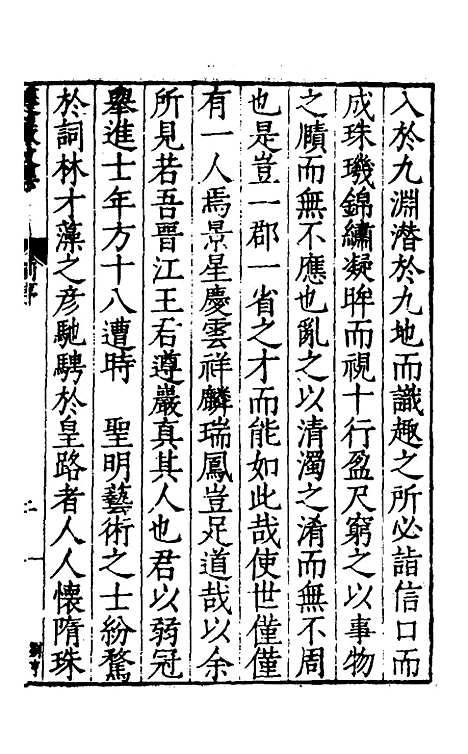 入於九淵潜於九地而識趣之所必詣信口而
成珠璣錦繡凝眸而視十行盈尺窮之以事物
之賾而無不應也亂之以清濁之淆而無不周
也是豈一郡一省之才而能如此哉使世僅僅
有一人焉景星慶雲祥麟瑞鳳豈足道哉以余
所見若吾晉江王君遵巖真其人也君以弱冠
舉進士年方十八遭時　聖明藝術之士紛騖
於詞林才藻之彦馳騁於皇路者人人懷隋珠